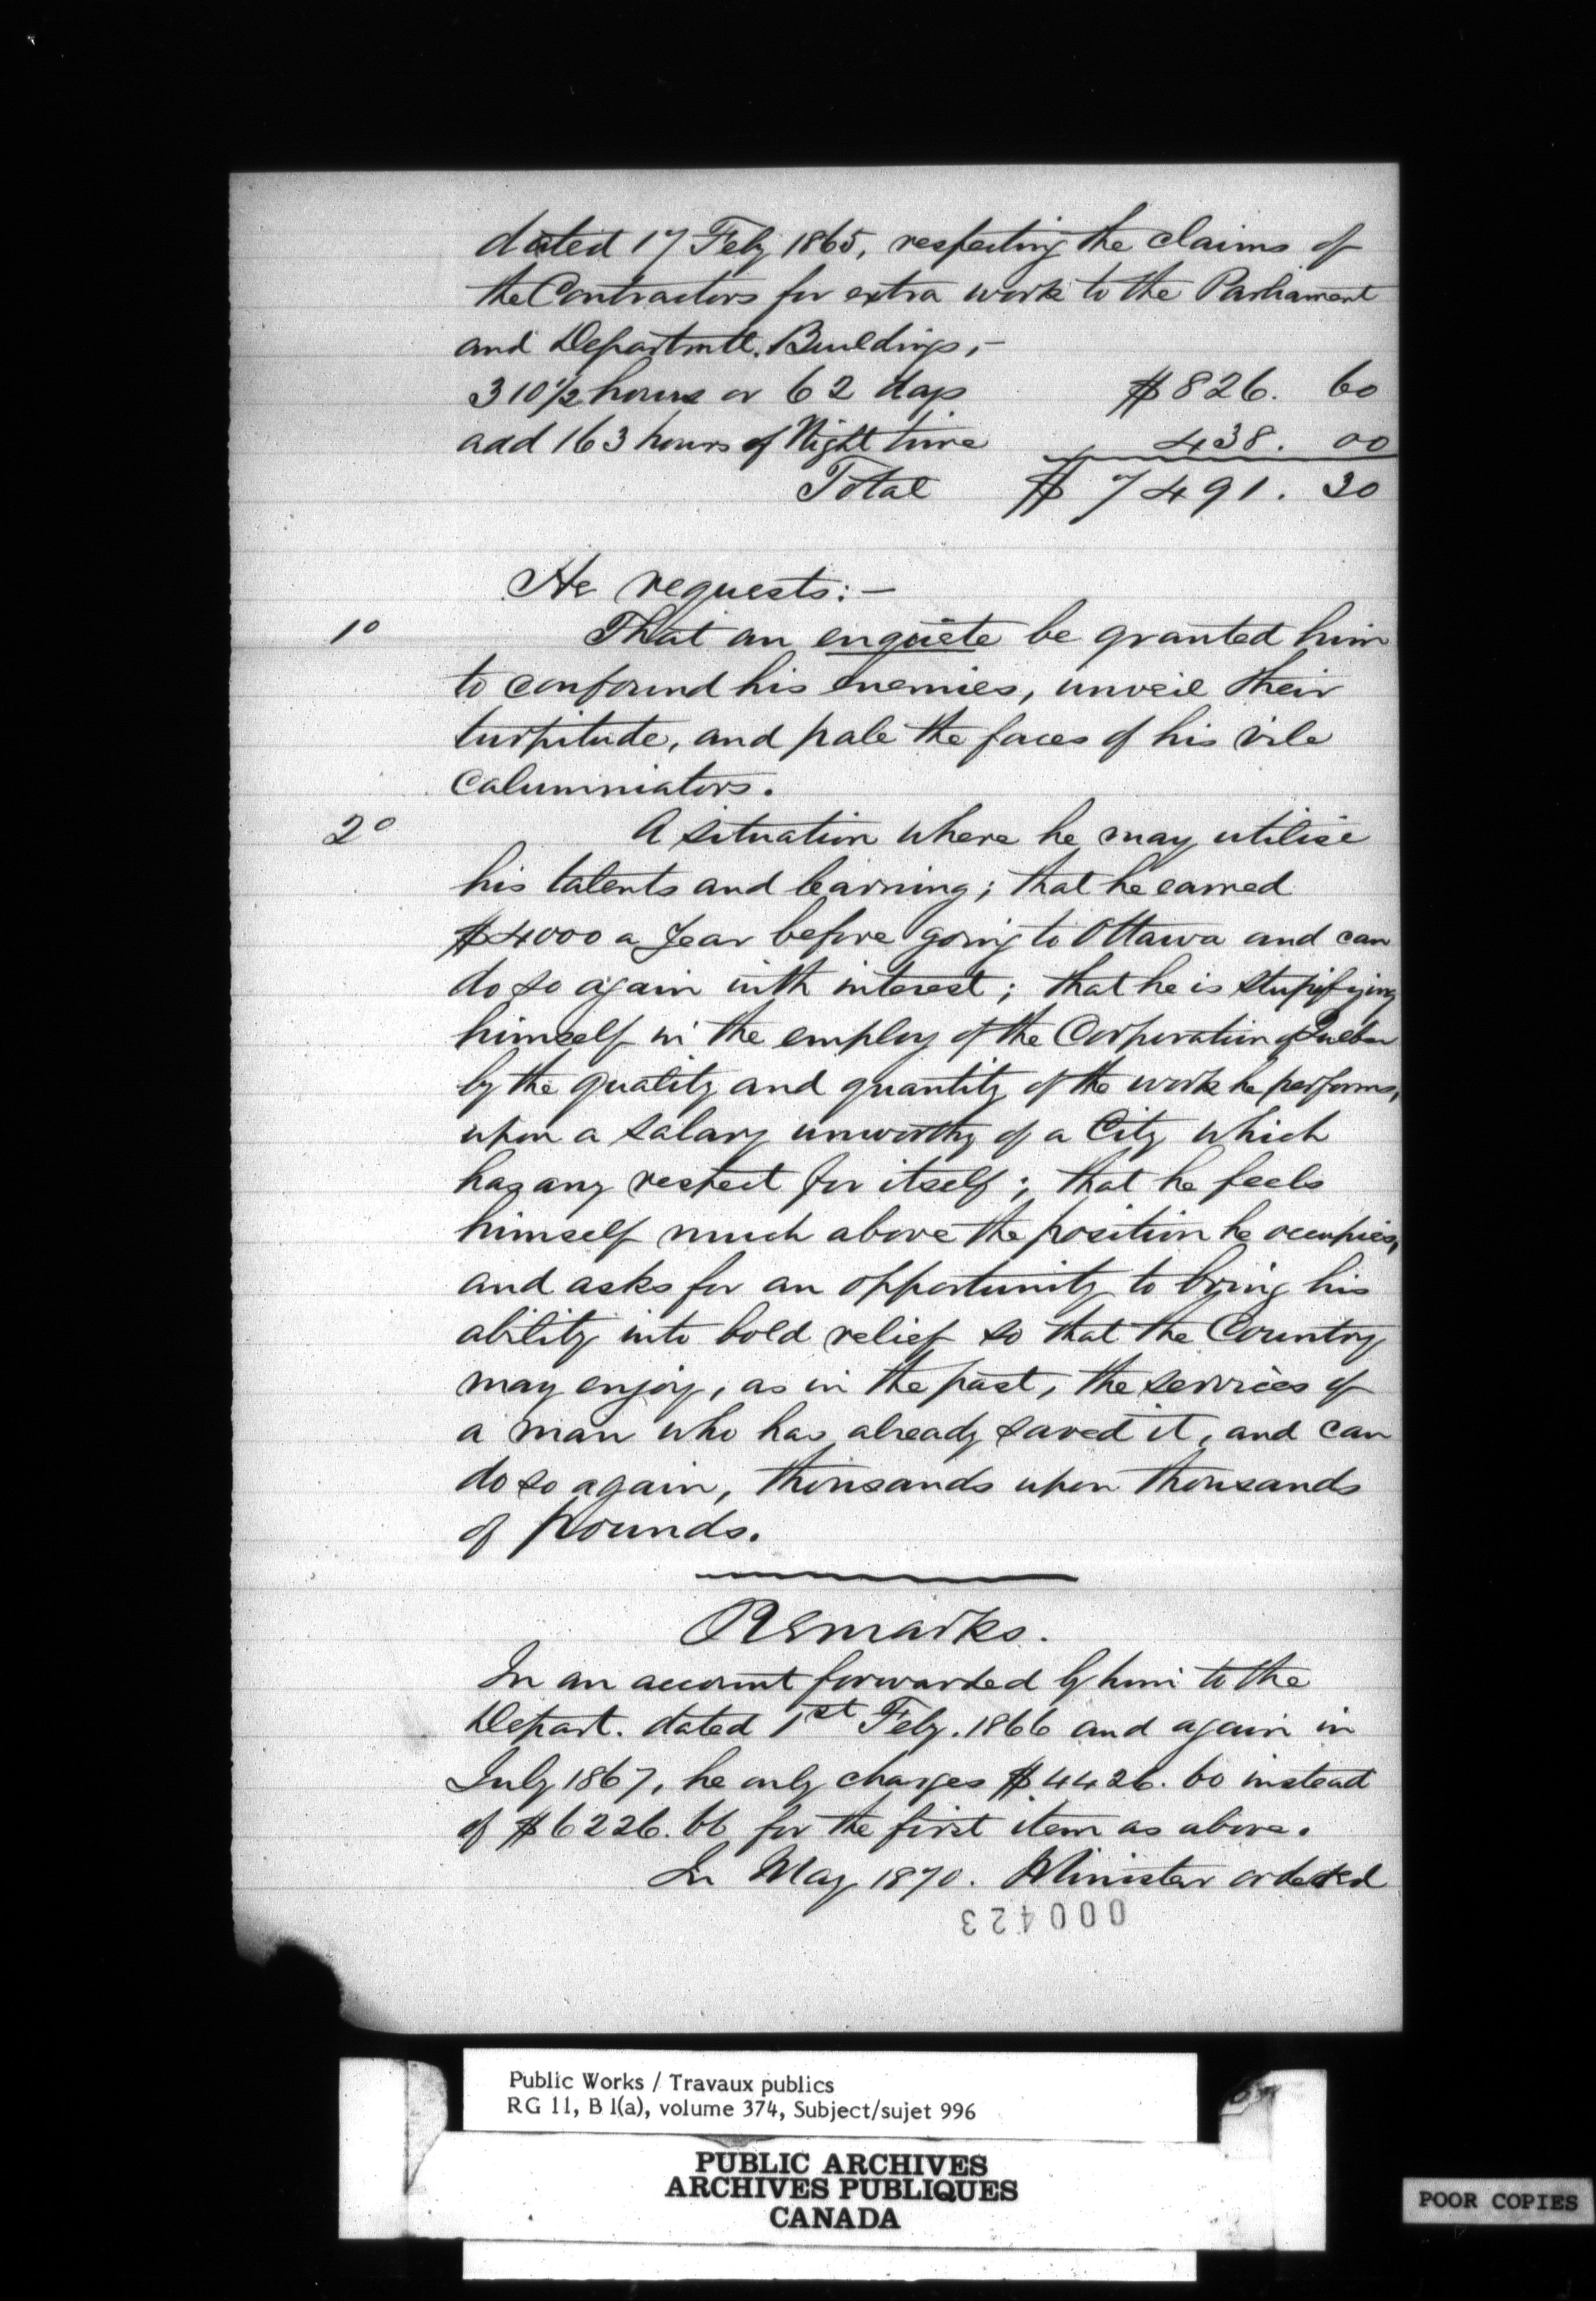 dated 17 Feby 1865, respecting the claims of
the Contractors for extra work to the Parliament
and Departmtl. Buildings, -
310 1/2 hours or 62 days $826. 60
add 163 hours of Night time 438. 00
Total $7491. 30
He requests: -
1º That an enquête be granted him
to confound his enemies, unveil their
turpitude, and pale the faces of his vile
calumniators.
2º A situation where he may utilise
his talents and learning; that he earned
$4000 a Year before going to Ottawa and can
do so again with interest; that he is stupifying
himself in the employ of the Corporation of Quebec
by the quality and quantity of the work he performs,
upon a salary unworthy of a City which
has any respect for itself; that he feels
himself much above the position he occupies,
and asks for an opportunity to bring his
ability into bold relief so that the Country
may enjoy, as in the past, the services of
a man who has already saved it, and can
do so again, thousands upon thousands
of pounds.
Remarks.
In an account forwarded by him to the
Depart. dated 1st Feby. 1866 and again in
July 1867, he only charges $4426. 60 instead
of $6226. 66 for the first item as above.
In May 1870. Minister ordered
000423
Public Works / Travaux publics
RG 11, B 1(a), volume 374, Subject/sujet 996
PUBLIC ARCHIVES
ARCHIVES PUBLIQUES
CANADA
POOR COPIES